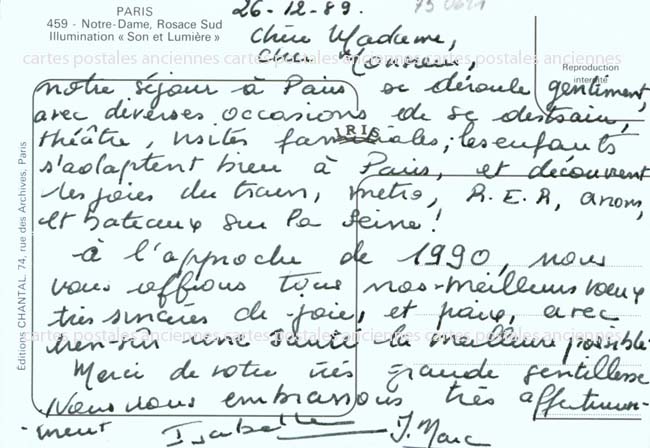 PARIS
459 - Notre-Dame, Rosace Sud
Illumination « Son et Lumière »
26-12-89.
Chère Madame,
Cher Monsieur,
cartes postales anciennes cartes postales anciennes cartes postales anciennes
Reproduction
interdite
notre séjour à Paris se déroule gentiment,
avec diverses occasions de se distraire,
théâtre, visites familiales; les enfants
IRIS
s'adaptent bien à Paris, et découvrent
les joies du train, métro, R.E.R, avions,
et bateaux sur la Seine!
à l'approche de 1990, nous
vous offrons tous nos meilleurs vœux
très sincères de joie, et paix, avec
cartes postales anciennes cartes postales anciennes cartes postales anciennes
bien-sûr une santé la meilleure possible.
Merci de votre très grande gentillesse
Nous vous embrassons très affectueuse-
-ment Isabelle J. Marc
Éditions CHANTAL, 74, rue des Archives, Paris